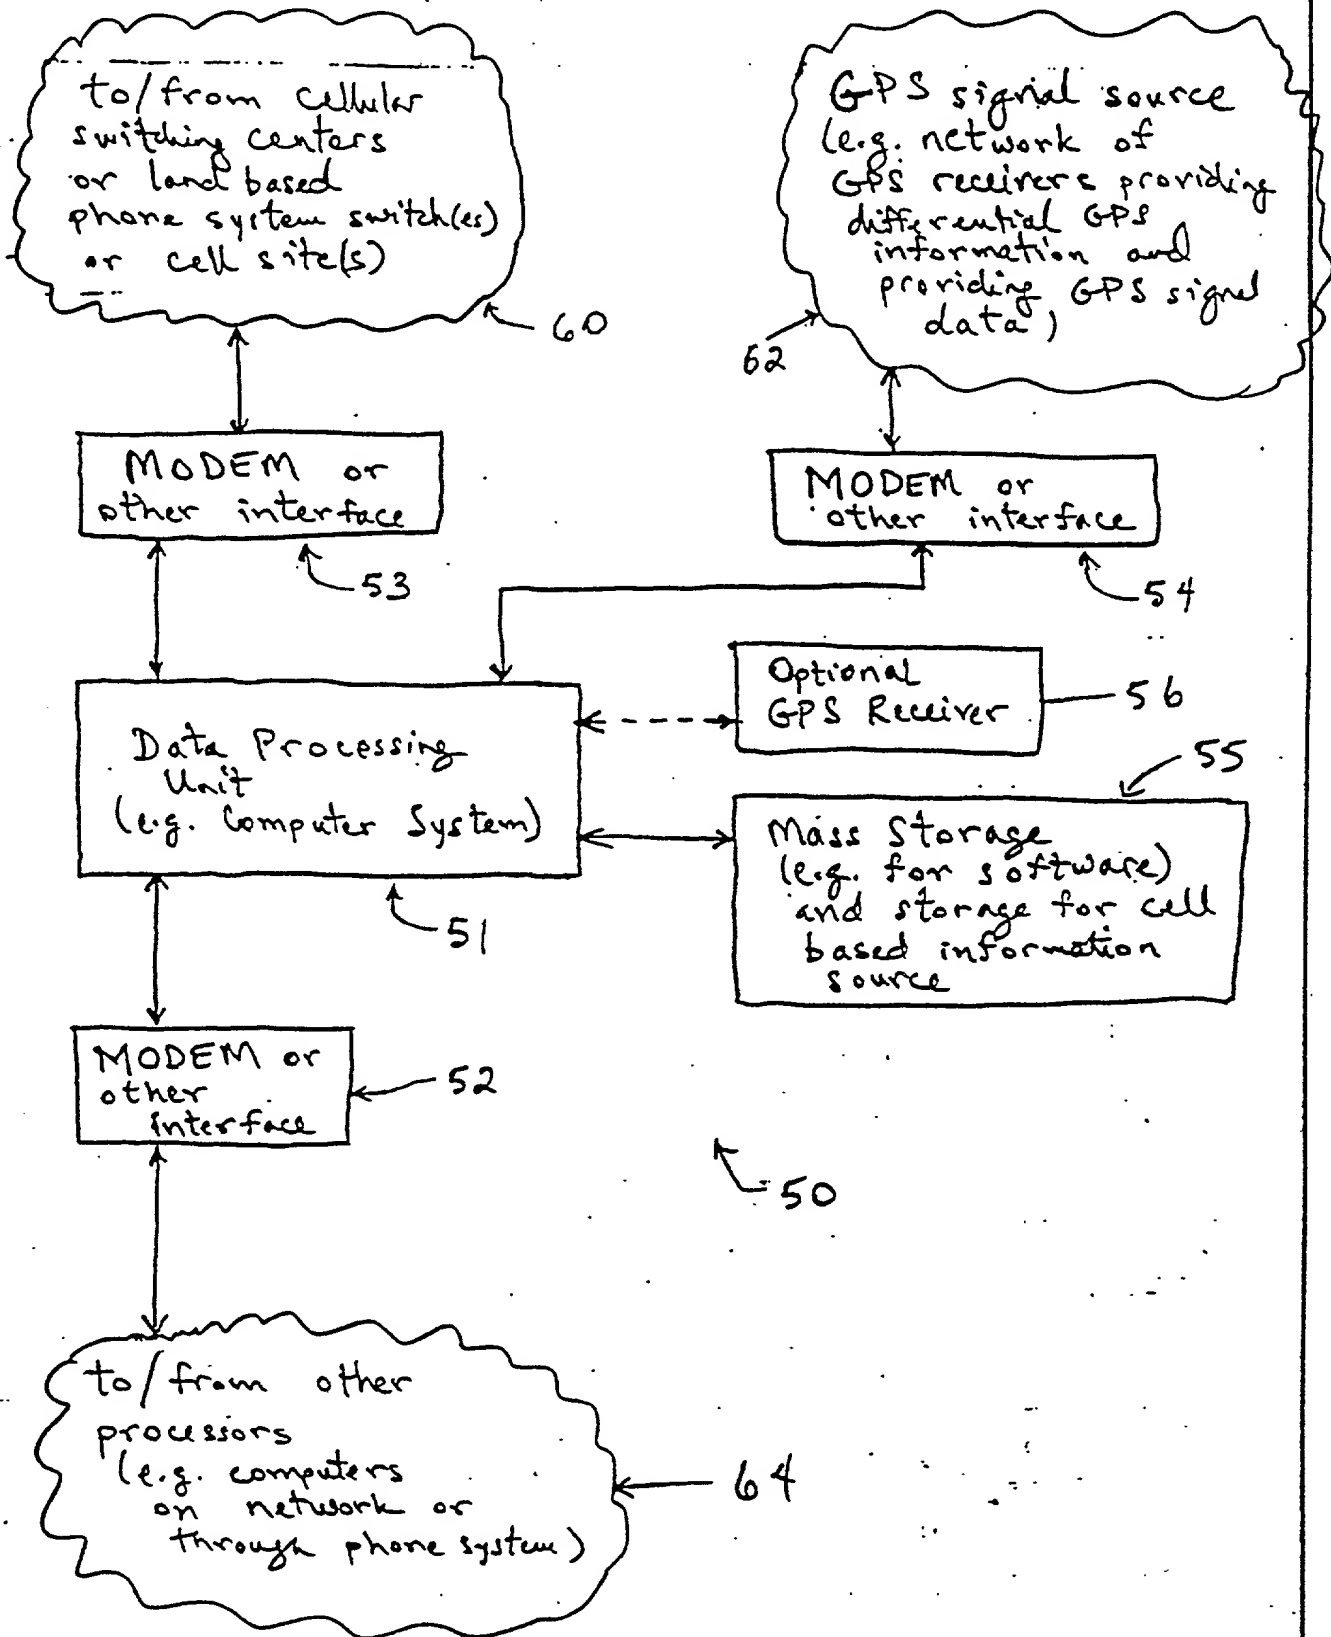 to/from cellular
switching centers
or land based
phone system switch(es)
or cell site(s)
60
GPS signal source
(e.g. network of
GPS receivers providing
differential GPS
information and
providing GPS signal
data)
62
MODEM or
other interface
53
MODEM or
other interface
54
Data Processing
Unit
(e.g. Computer System)
51
Optional
GPS Receiver
56
55
Mass Storage
(e.g. for software)
and storage for cell
based information
source
MODEM or
other
interface
52
50
to/from other
processors
(e.g. computers
on network or
through phone system)
64